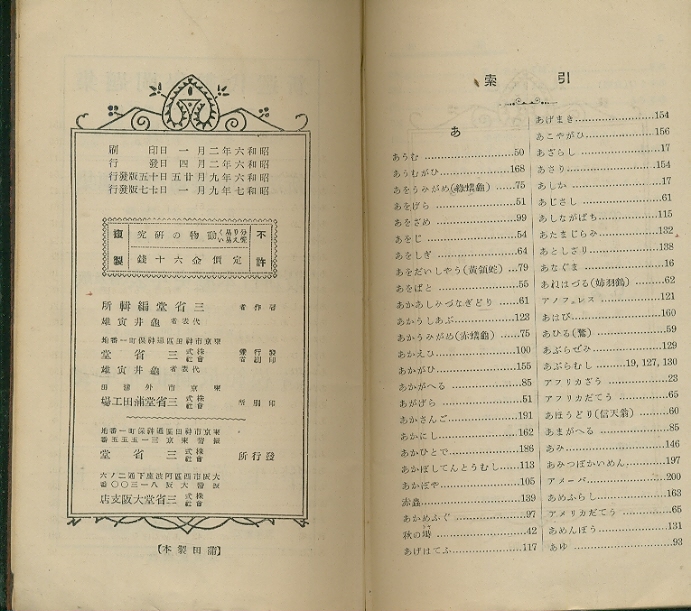 昭和六年二月一日印刷
昭和六年二月四日發行
昭和六年九月廿五日十五版發行
昭和七年九月一日七七版發行
不許
複製
動物の研究
定價金六十錢
著作者
三省堂編輯所
代表者 龜井寅雄
東京市神田區通神保町一番地
發行兼印刷者
株式會社 三省堂
代表者 龜井寅雄
東京市外蒲田
印刷所
株式會社 三省堂蒲田工場
東京市神田區通神保町一番地
振替東京三一五五五番
發行所
株式會社 三省堂
大阪市西區阿波座下通二ノ六
振替大阪八一三〇〇番
株式會社 三省堂大阪支店
【蒲田製本】
索引
あ
あうむ 50
あうむがひ 168
あをうみがめ(綠蠵龜) 75
あをげら 51
あをざめ 99
あをじ 54
あをしぎ 64
あをだいしやう(黃頷蛇) 79
あをばと 55
あかあしみづなぎどり 61
あかうしあぶ 123
あかうみがめ(赤蠵龜) 75
あかえひ 100
あかがひ 155
あかがへる 85
あかげら 51
あかさんご 191
あかにし 162
あかひとで 186
あかぼしてんとうむし 113
あかぼや 105
赤蟲 139
あかめふぐ 97
秋の鳴 42
あげはてふ 117
あげまき 154
あこやがひ 156
あざらし 17
あさり 154
あしか 17
あじさし 61
あしながばち 115
あたまじらみ 132
あとしざり 138
あなぐま 16
あねはづる(姉羽鶴) 62
アノフェレス 121
あはび 160
あひる(鶩) 59
あぶらぜみ 129
あぶらむし 19, 127, 130
アフリカざう 23
アフリカだてう 65
あほうどり(信天翁) 60
あまがへる 85
あみ 146
あみつぼかいめん 197
アメーバ 200
あめふらし 163
アメリカだてう 65
あめんぼう 131
あゆ 93